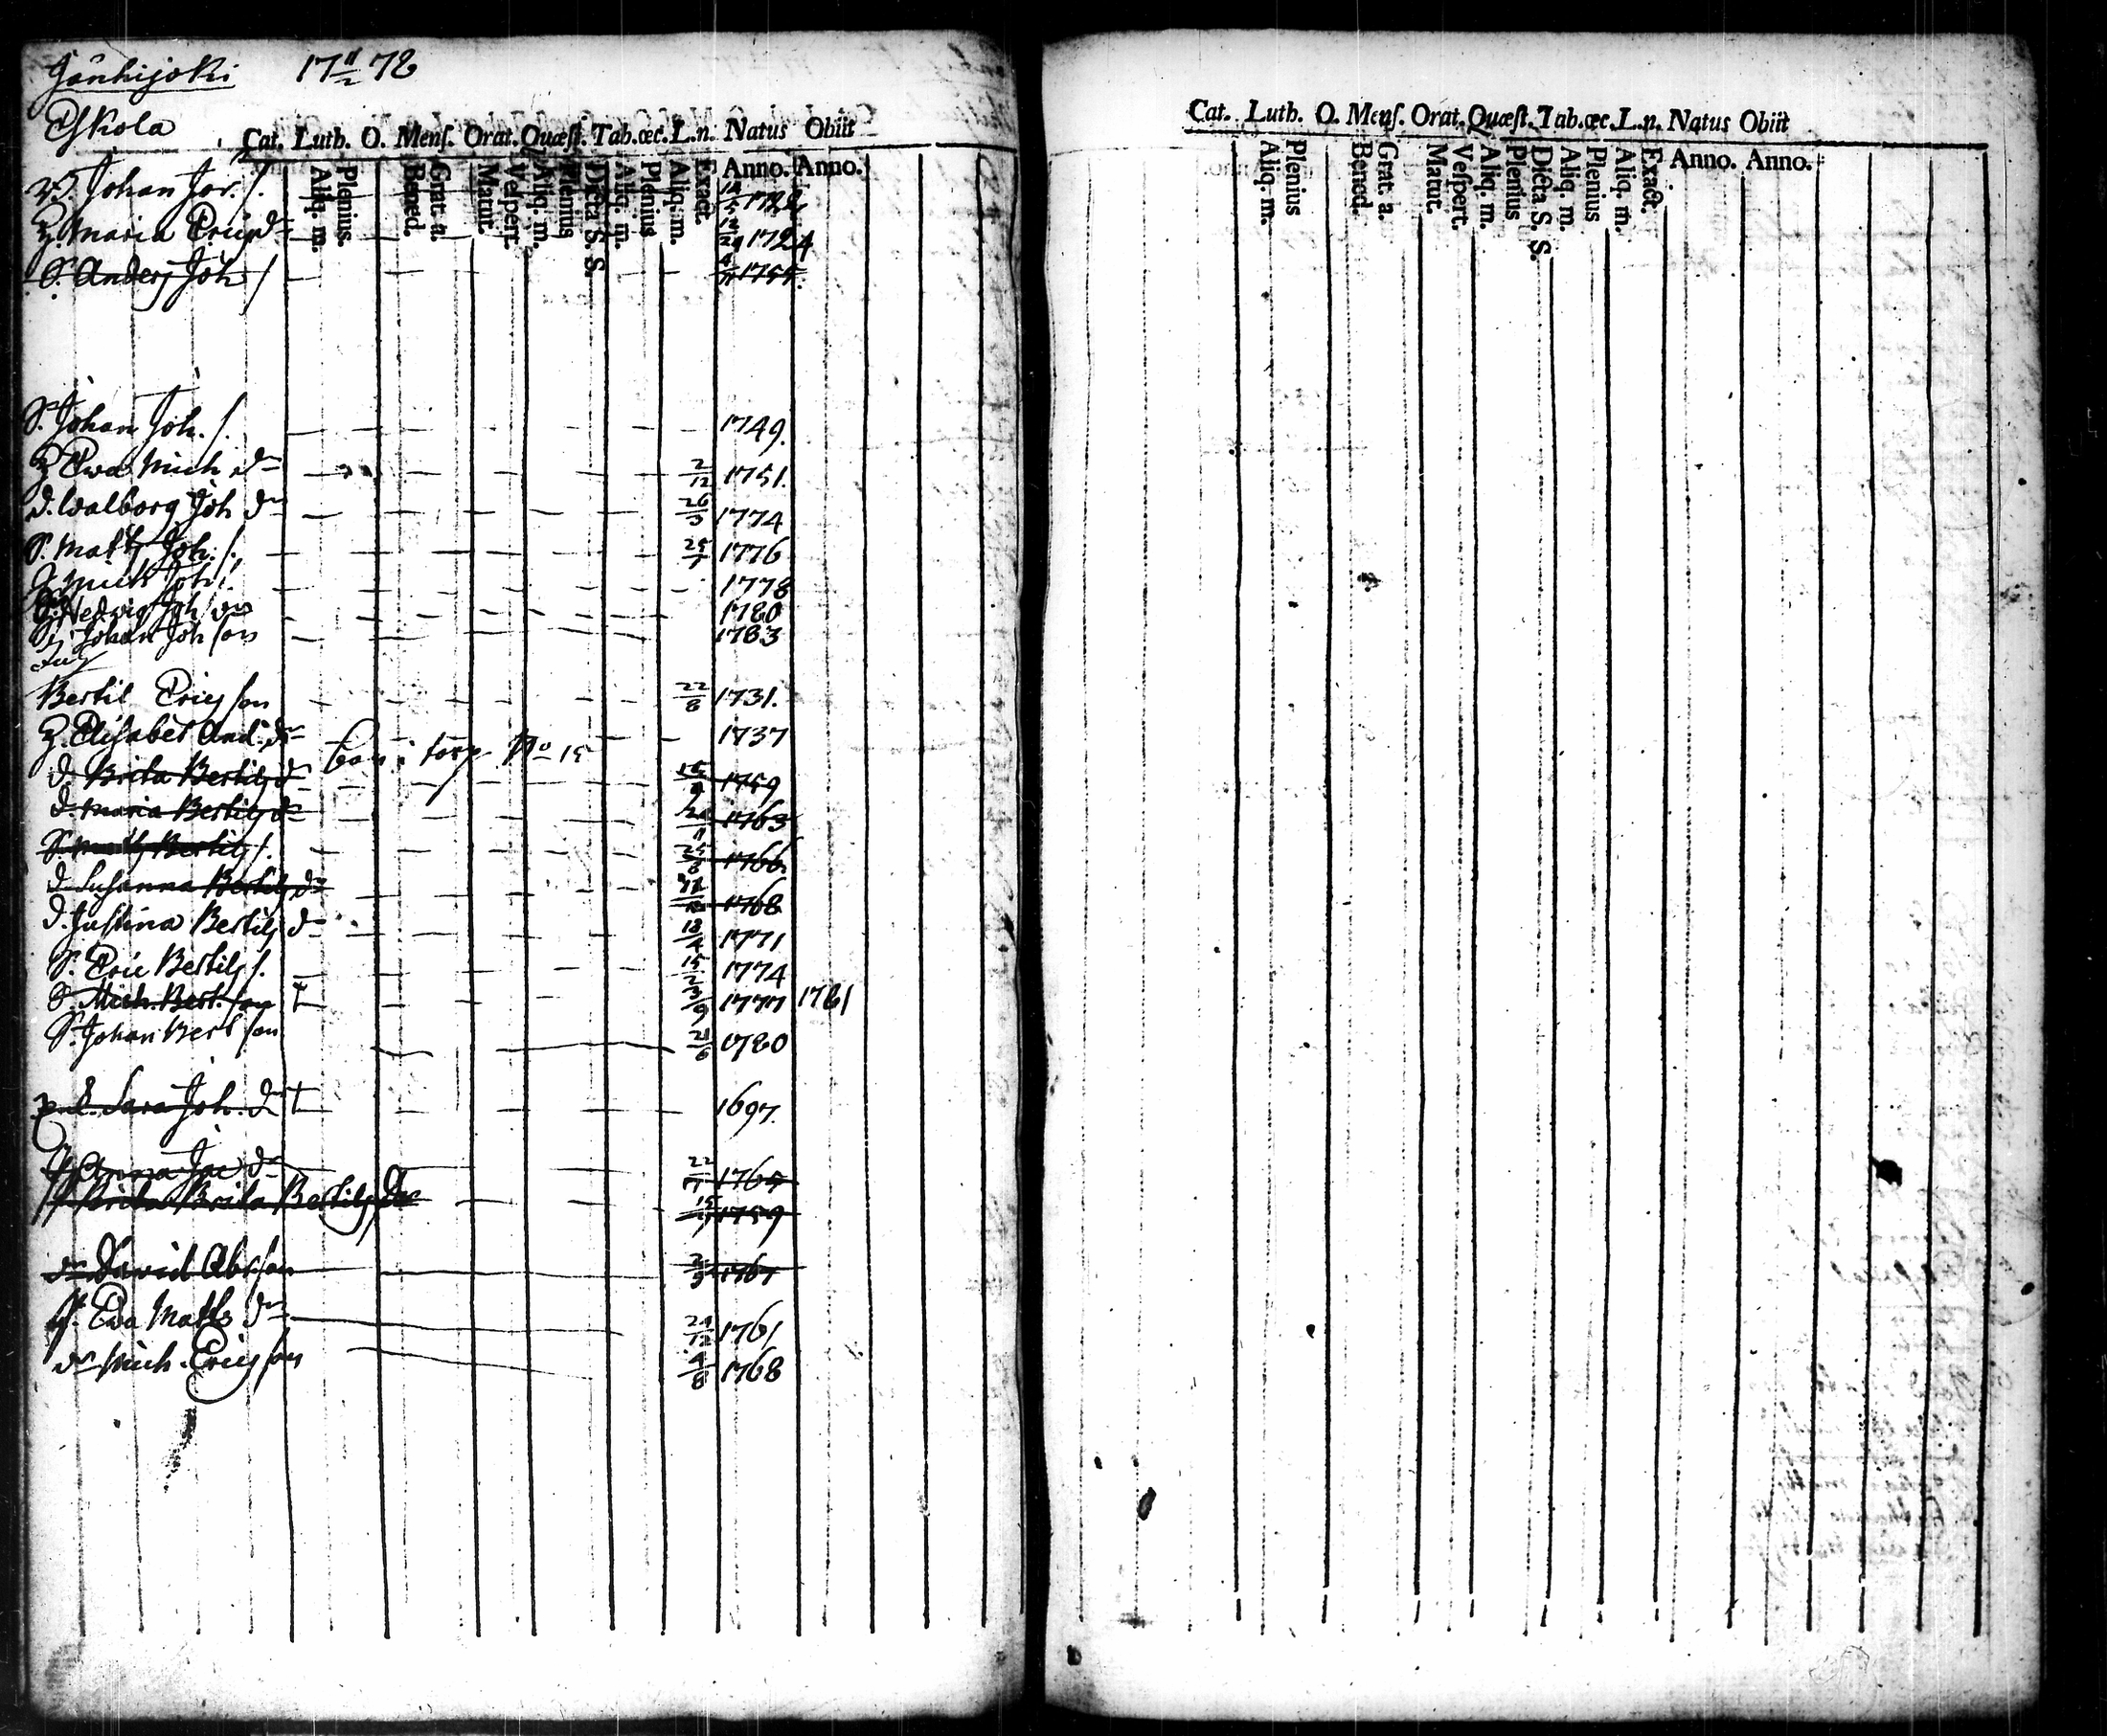 Jänhijoki 17 11/2 78
Eskola
Cat. Luth. O. Menſ. Orat. Quæſt. Tab.œc. L.n. Natus Obiit
Aliq. m. Plenius. Bened. Grat. a. Matut. Veſpert. Aliq. m. Plenius Dicta S. S. Aliq. m. Plenius Aliq. m. Exact. Anno. Anno.
Johan Jor. s.
H. Maria Erics dr 1724
S. Anders Joh s 1755.
S. Johan Joh. s. 1749.
H Ewa Mich dr 2/12 1751.
D. Walborg Joh dr 26/3 1774
S. Matts Joh. s. 25/7 1776
S Mich Joh s. 1778
Hedvig Joh 1780
Johan Joh son 1783
Inh
Bertil Erics son 22/8 1731.
H. Elisabet And. dr 1737
D. Brita Bertils dr torp No 15 1759
D. Maria Bertils dr 1763
S. Matts Bertils s. 1766
D Susanna Bertils dr 1768
D. Justina Bertils dr 13/4 1771
S. Eric Bertils s. 1774
S. Mich. Bert. son † 1777 1781
S. Johan Bert son 21/6 1780
Sara Joh. dr † 1697.
Anna Jac dr 1765
Brita Bertils dr 1759
dr David Abr. son 1767
P. Ewa Matts dr 1761
dr Mich. Erics son 4/8 1768
Cat. Luth. O. Menſ. Orat. Quæſt. Tab.œc. L.n. Natus Obiit
Aliq. m. Plenius Bened. Grat. a. Matut. Veſpert. Aliq. m. Plenius Dicta S. S. Aliq. m. Plenius Aliq. m. Exact. Anno. Anno.